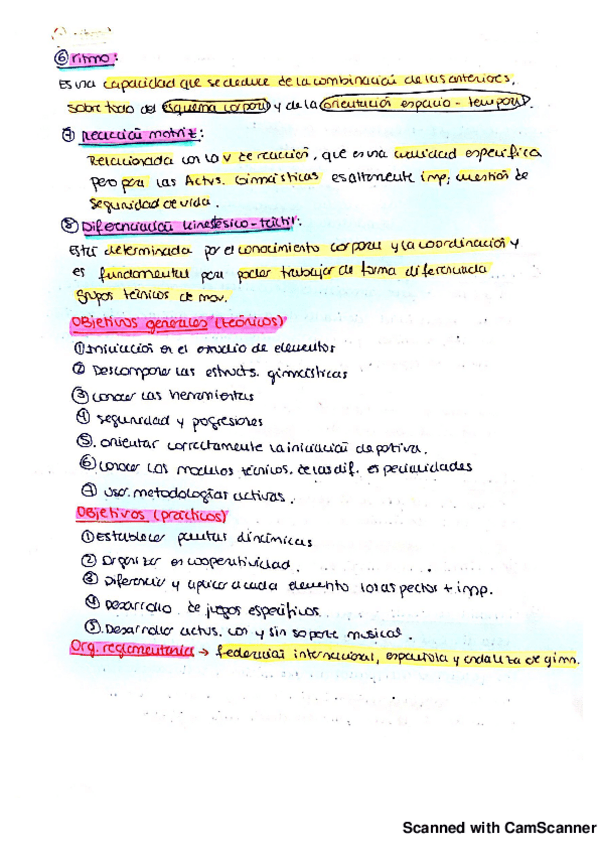 ⑥ ritmo:
Es una capacidad que se deduce de la combinación de las anteriores,
sobre todo del esquema corporal y de la orientación espacio-temporal.
⑦ Reacción motriz:
Relacionada con la v de reacción, que es una cualidad específica
pero para las Actvs. Gimnásticas es altamente imp; cuestión de
seguridad de vida.
⑧ Diferenciación kinestésico-táctil:
Está determinada por el conocimiento corporal y la coordinación y
es fundamental para poder trabajar de forma diferenciada
grupos técnicos de mov.
Objetivos generales (teóricos)
① Iniciación en el estudio de elementos
② Descomponer las estructs. gimnásticas
③ conocer las herramientas
④ seguridad y pogresiones
⑤. orientar correctamente la iniciación deportiva.
⑥ conocer los modulos técnicos. de las dif. especialidades
⑦ usar. metodologías activas.
Objetivos (prácticos)
① Establecer pautas dinámicas
② Organizar en cooperatividad.
③ Diferenciar y aplicar a cada elemento los aspectos + imp.
④ Desarrollo de juegos específicos
⑤. Desarrollar actvs. con y sin soporte musical.
Org. reglamentaria → federación internacional, española y andaluza de gimn.
Scanned with CamScanner